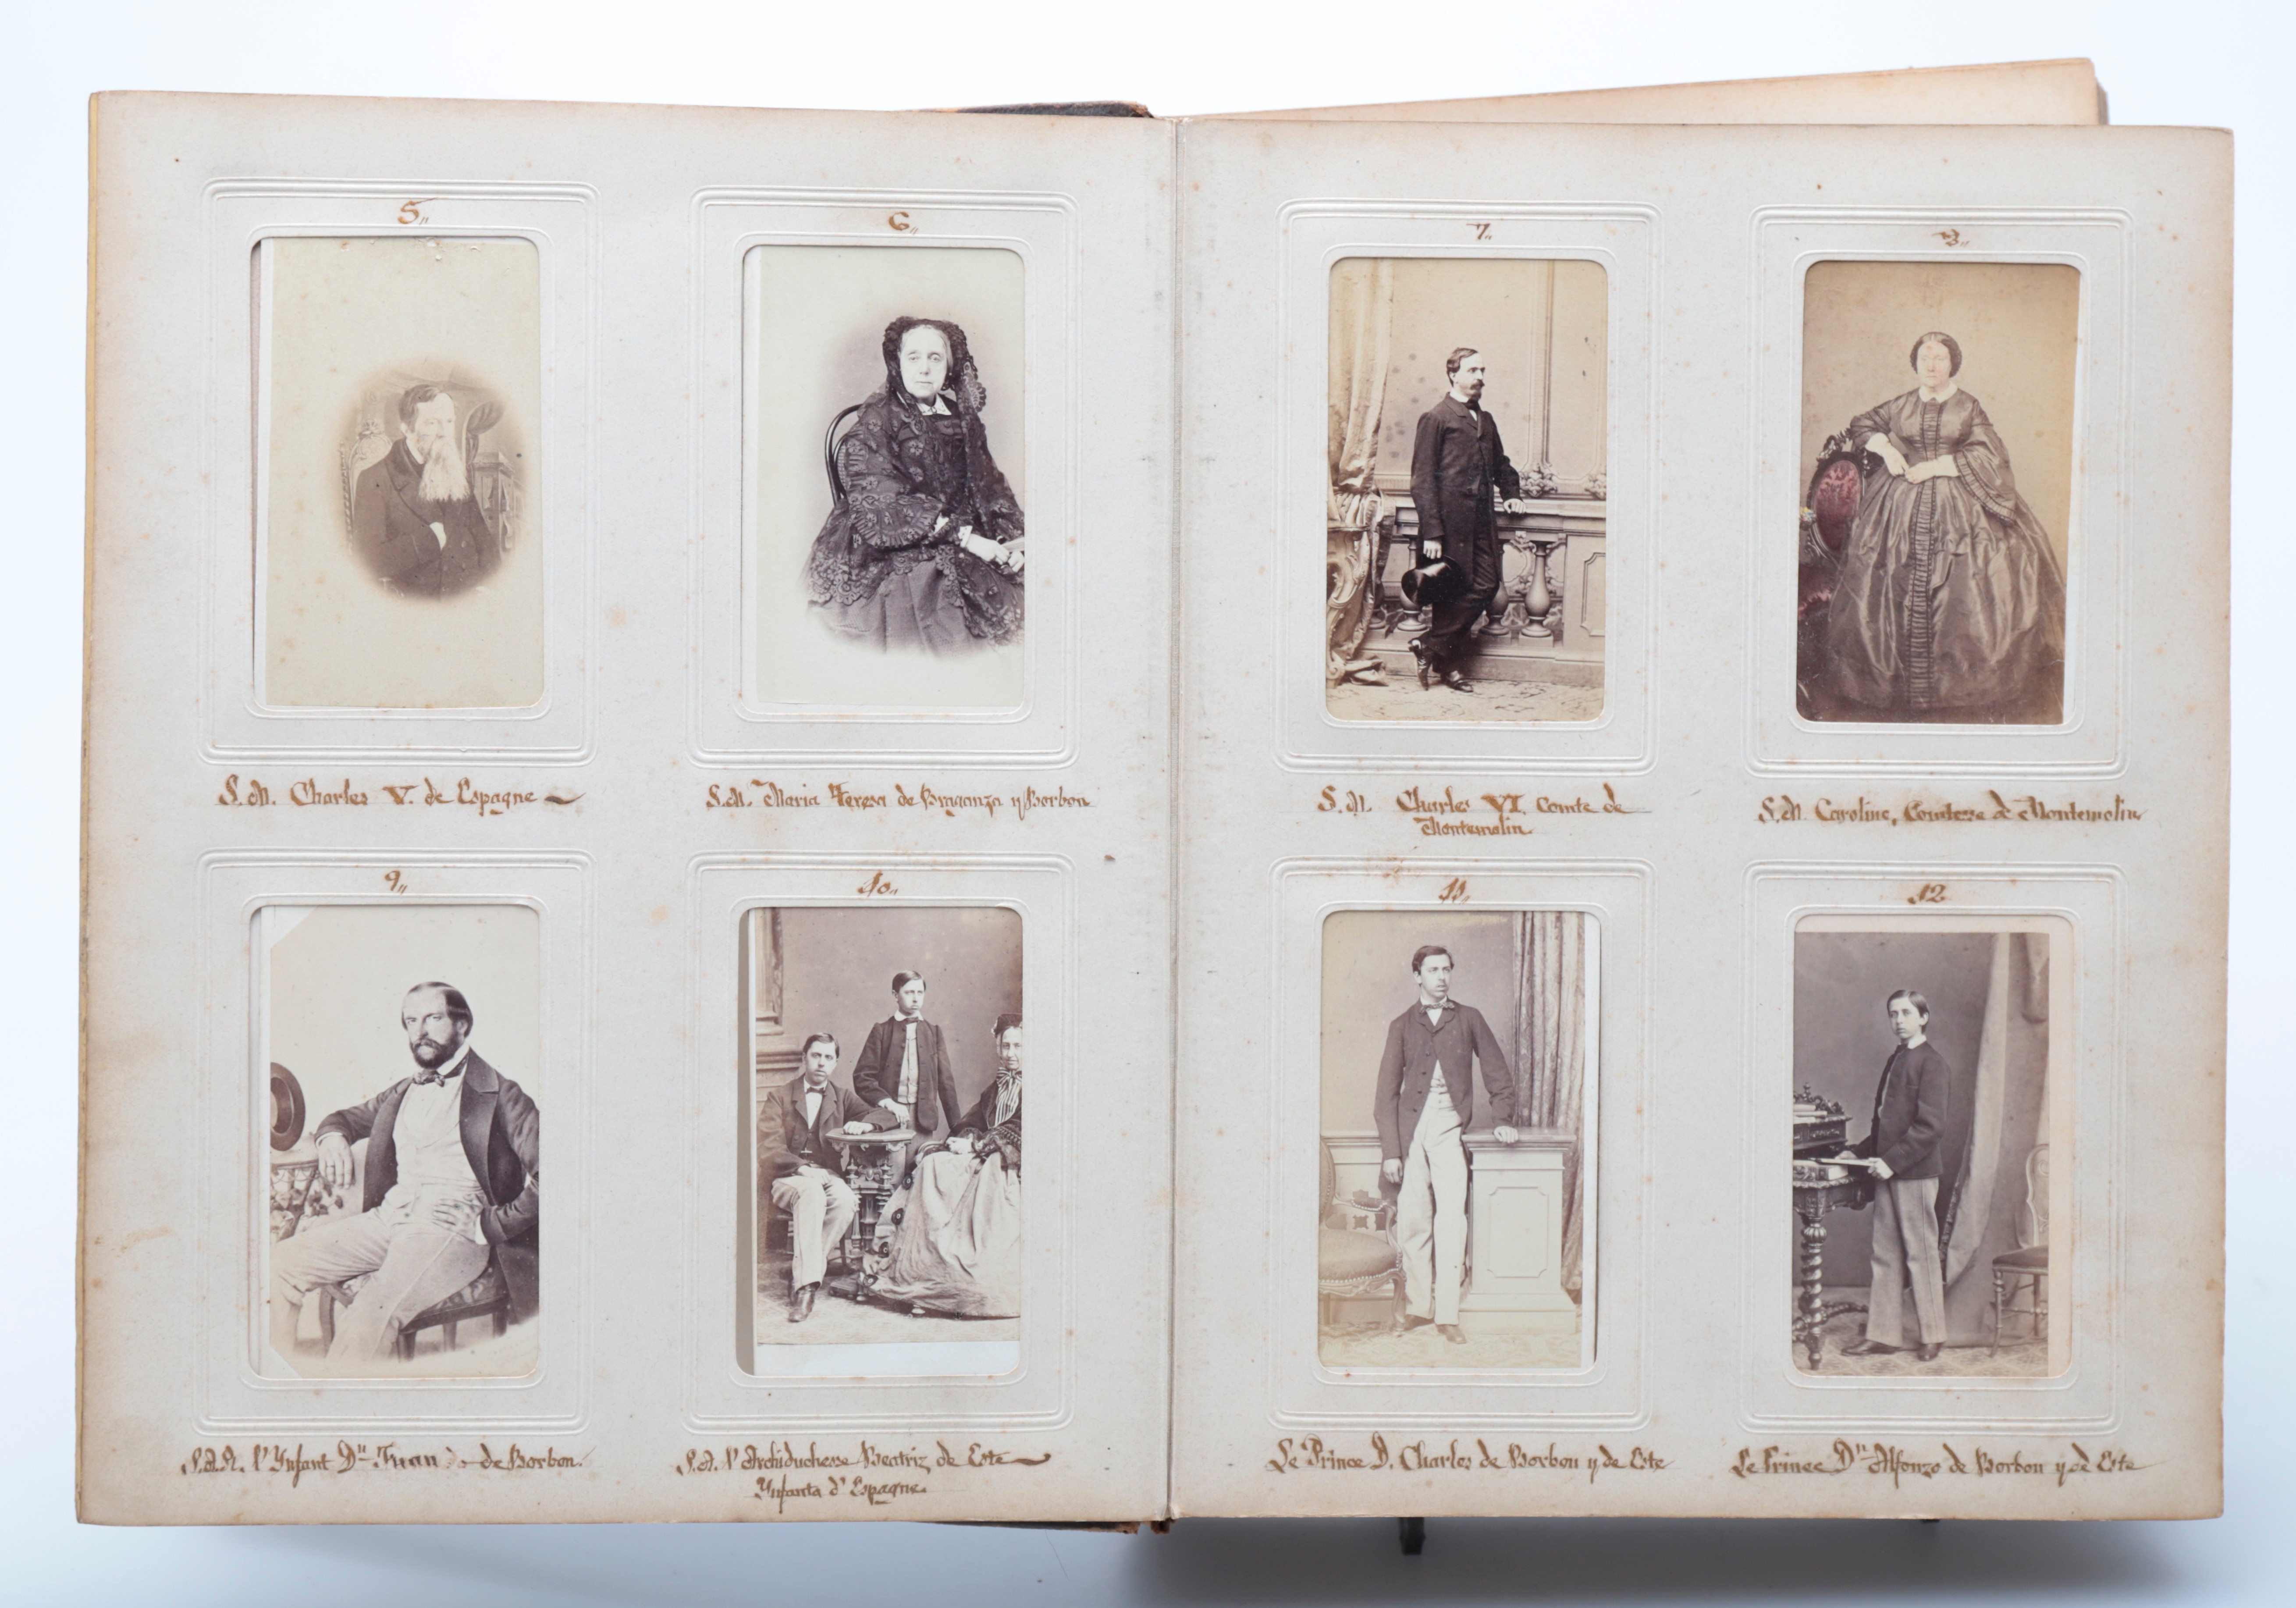 5"
6"
7"
8"
S.M. Charles V. de Espagne
S.M. Maria Teresa de Braganza y Borbon
S.M. Charles VI. Comte de
Montemolin
S.M. Caroline, Comtesse de Montemolin
9"
10"
11"
12
S.A.R. l'Ynfant Dn Juan de Borbon.
S.A. l'Archiduchesse Beatriz de Este
Ynfanta d'Espagne.
Le Prince D. Charles de Borbon y de Este
Le Prince Dn Alfonzo de Borbon y de Este